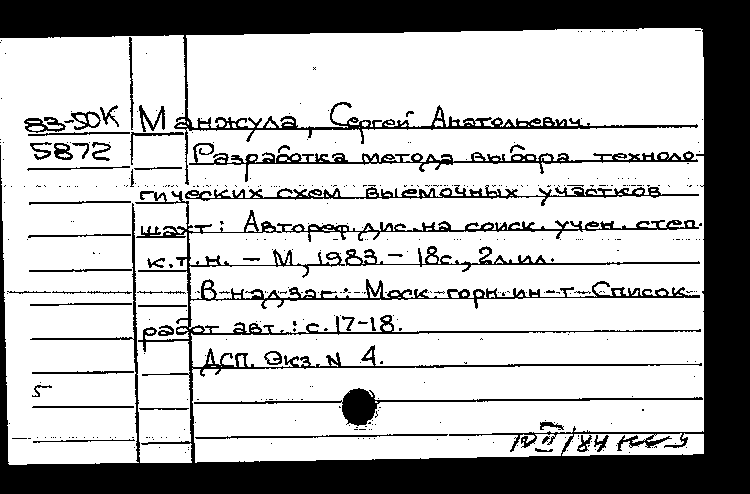 83-50К Манжула, Сергей Анатольевич.
5872 Разработка метода выбора техноло-
гических схем выемочных участков
шахт: Автореф. дис. на соиск. учен. степ.
к.т.н. – М., 1983. – 18с., 2л.ил.
В надзаг.: Моск. горн. ин-т Список
работ авт.: с. 17-18.
ДСП. Экз. N 4.
5